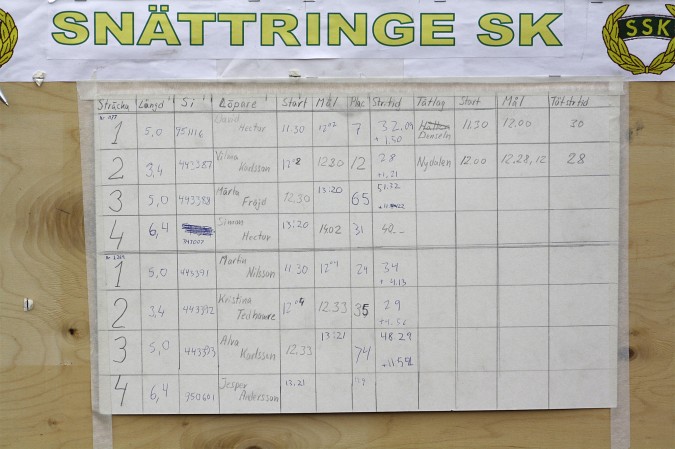 SNÄTTRINGE SK
SSK
Sträcka Längd Si Löpare Start Mål Plac Str.tid Tätlag Start Mål Tätstrtid
1 5,0 951116 David Hector 11.30 12 02 7 32,09 +1.50 Domseln 11.30 12.00 30
2 3,4 443387 Vilma Karlsson 12 12.30 12 28 +1,21 Nydalen 12.00 12.28,12 28
3 5,0 443388 Märta Fröjd 12.30 13:20 65
4 6,4 Simon Hector 13:20 1402 31 40
1 5,0 443391 Martin Nilsson 11 30 12 24 34 4.13
2 3,4 443392 Kristina 12 04 12.33 35 29
3 5,0 Alva Karlsson 12.33 13:21 74 48 29
4 6,4 950601 Jesper Andersson 13:21